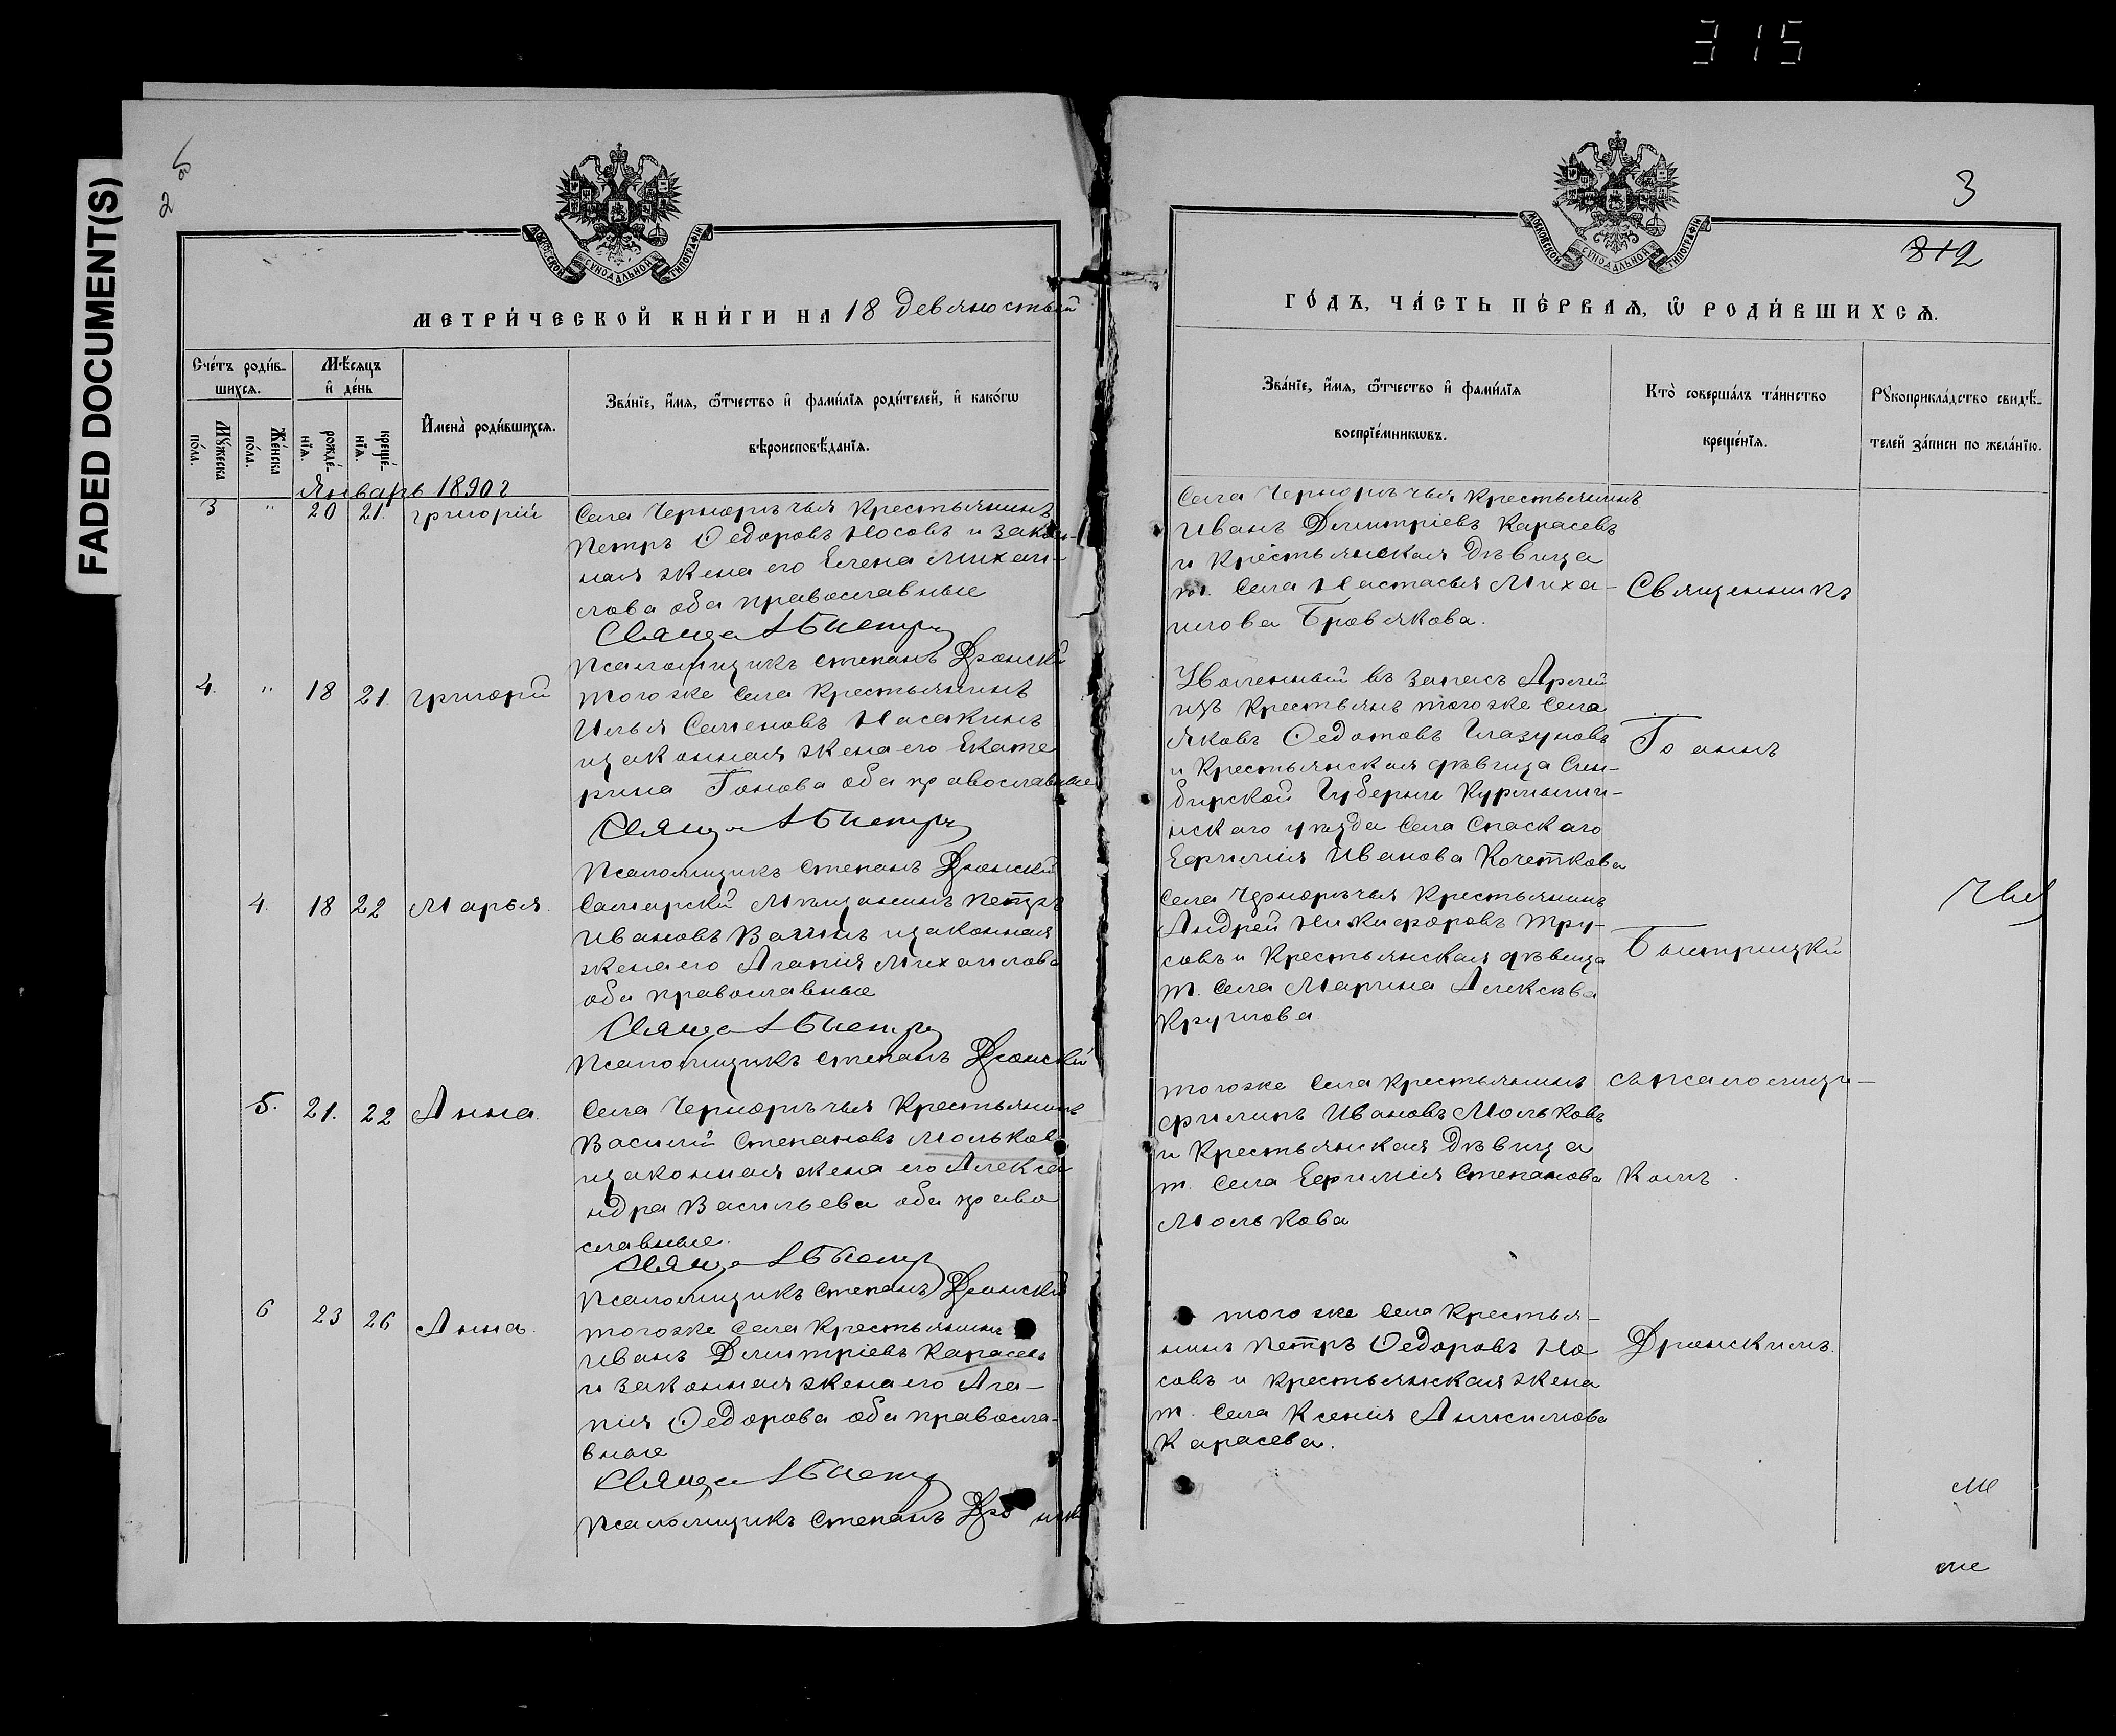 315
FADED DOCUMENT(S)
2
МОСКОВСКОЙ СѴНОДАЛЬНОЙ ТИПОГРАФІИ
МЕТРИ́ЧЕСКОЙ КНИ́ГИ НА 18 девяностый
Сче́тъ роди́в-
шихсѧ.
Мѣ́сѧцъ
и҆ де́нь
Мꙋ́жеска
по́ла.
Же́нска
по́ла.
рожде́-
нїѧ.
креще́-
нїѧ.
И҆мена̀ роди́вшихсѧ.
Зва́нїе, и҆́мѧ, ѻ҆́тчество и҆ фамѝлїѧ роди́телей, и҆ како́гѡ
вѣроисповѣ́данїѧ.
Январь 1890 г
3 " 20 21. Григорій
Села Чернорѣчья Крестьянинъ
Петръ Ѳедоровъ Носовъ и закон-
ная жена его Елена Михаи-
лова оба православные
Псаломщикъ Степанъ Дронскій
4. " 18 21. Григорій
тогоже Села Крестьянинъ
Илья Семеновъ Насакинъ
изаконная жена его Екате
рина Іонова оба православные
Псаломщикъ Степанъ Дронскій
4. 18 22 Марья.
Самарскій Мѣщанинъ Петръ
Ивановъ изаконная
жена его Агапія Михаилова
оба православные
Псаломщикъ Степанъ Дронскій
5. 21. 22 Анна.
Села Чернорѣчья Крестьянинъ
Василій Степановъ Мольков
изаконная жена его Алекса
ндра Васильева оба право
славные.
Псаломщикъ Степанъ Дронскій
6 23 26 Анна.
тогоже Села Крестьянинъ
Иванъ Димитріевъ Карасевъ
и законная жена его Ага-
пія Ѳедорова оба правосла-
вные
Псаломщикъ Степанъ
3
812
МОСКОВСКОЙ СѴНОДАЛЬНОЙ ТИПОГРАФІИ
ГО́ДЪ, ЧА́СТЬ ПЕ́РВАѦ, Ѡ҆ РОДИ́ВШИХСѦ.
Зва́нїе, и҆́мѧ, ѻ҆́тчество и҆ фамѝлїѧ
воспрїе́мникѡвъ.
Кто̀ соверша́лъ та́инство
креще́нїѧ.
Рꙋкоприкла́дство свидѣ́-
телей за́писи по жела́нїю.
Села Чернорѣчья Крестьянинъ
Иванъ Димитріевъ Карасевъ
и Крестьянская Дѣвица
т. Села Настасья Миха-
илова Бровякова.
Священникъ
Уволенный въ запасъ Арміи
изъ Крестьянъ тогоже Села
Яковъ Ѳедотовъ Глазуновъ
и Крестьянская дѣвица Сим-
бирской Губерніи Курмыши-
нскаго уѣзда Села Спаскаго
Ефимія Иванова Кочеткова
Іоаннъ
Села Чернорѣчья Крестьянинъ
Андрей Никифоровъ Тру-
совъ и Крестьянская дѣвица
т. Села Марина Алексѣва
Круглова.
Быстрицкій
тогоже Села крестьянинъ
филипъ Ивановъ Мольковъ
и Крестьянская Дѣвица
т. Села Ефимія Степанова
Молькова
съ псаломщи-
комъ
тогоже Села Крестья-
нинъ Петръ Ѳедоровъ Но
совъ и крестьянская жена
т. Села Ксенія Анисимова
Карасева.
Дронскимъ.